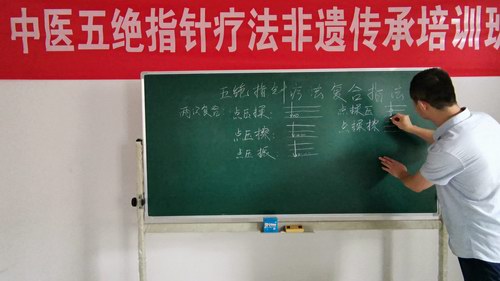 中医五绝指针疗法非遗传承培训班
五绝指针疗法复合指法
两次复合: 点压揉 点揉压
点压揉
点压振